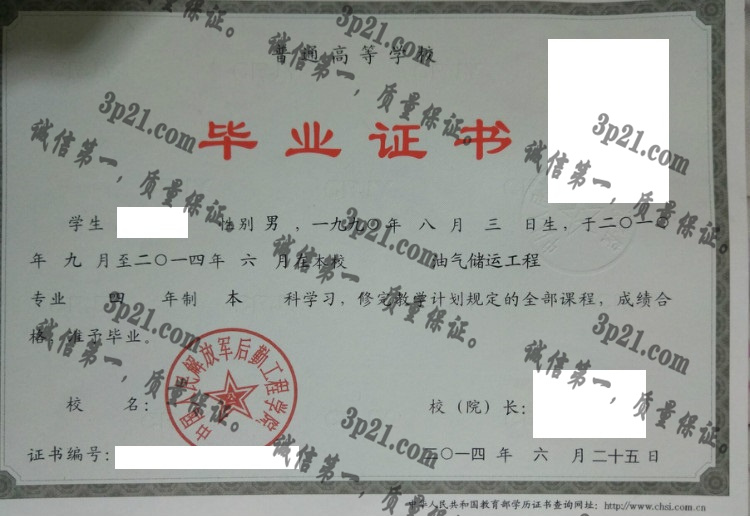 普通高等学校
毕业证书
学生 性别 男，一九九〇年 八 月 三 日生，于二〇一〇
年 九 月至二〇一四年 六 月在本校 油气储运工程
专业 四 年制 本 科学习，修完教学计划规定的全部课程，成绩合
格，准予毕业。
中国人民解放军后勤工程学院
校 名： 校（院）长：
证书编号： 二〇一四 年 六 月 二十五 日
中华人民共和国教育部学历证书查询网址：http://www.chsi.com.cn
3p21.com
诚信第一，质量保证。
3p21.com
诚信第一，质量保证。
3p21.com
诚信第一，质量保证。
3p21.com
诚信第一，质量保证。
3p21.com
诚信第一，质量保证。
3p21.com
诚信第一，质量保证。
3p21.com
诚信第一，质量保证。
3p21.com
诚信第一，质量保证。